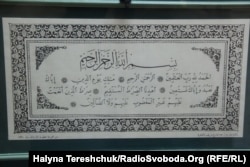 بسم الله الرحمن الرحيم
الحمد لله رب العالمين الرحمن الرحيم مالك يوم الدين
إياك نعبد وإياك نستعين اهدنا الصراط المستقيم صراط الذين أنعمت
عليهم غير المغضوب عليهم ولا الضالين
Halyna Tereshchuk/RadioSvoboda.Org (RFE/RL)